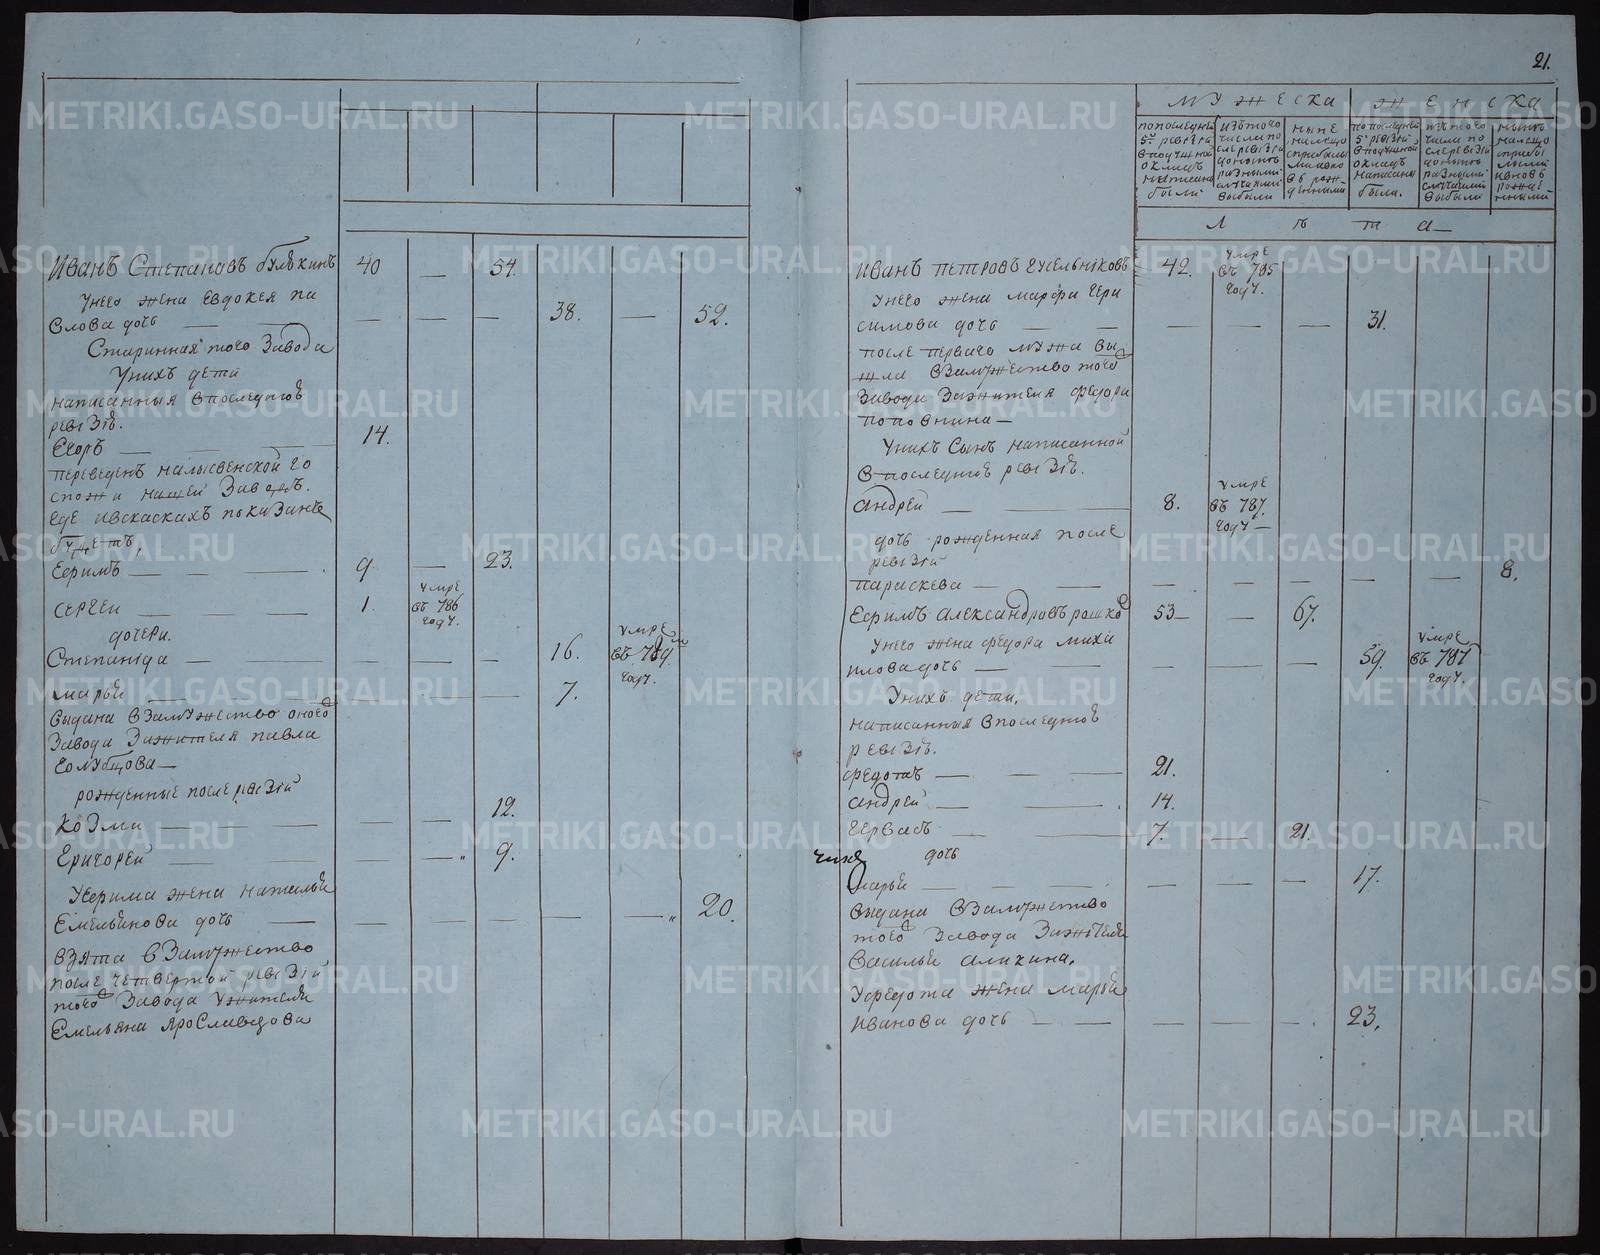 Иванъ Степановъ булыкинъ 40 — 54.
Унего жена Евдокея па
влова дочь — — — — — 38. — 52.
Старинная того Завода
Унихъ дети
написанныя впоследнѣй
ревизіи.
Егоръ — — 14.
переведенъ налысвенской го
спожи нашей Заводъ.
где ивскаскахъ показанъ
будетъ,
Ефимъ — — 9 — 23.
Сергеи — — 1. умре въ 786 году.
дочери.
Степанида — — — — — 16. умре въ 789м году.
марья — — — — — 7.
выдана взамужество оного
Завода Зажителя павла
Голубцова —
рожденные после ревизіи
Козма — — — — 12.
Григореи — — — — 9.
Уефима жена наталья
Емельянова дочь — — — — — — 20.
взята взамужество
после четвертой ревизіи
того Завода ужителя
Емельяна Ярославцова
21.
мужеска женска
попоследней 5й ревизіи вподушной окладъ написано были
изътого числа после ревизіи доныне разными случаями выбыли
ныне налицо
попоследней 5й ревизіи вподушной окладъ написаны были.
изътого числа после ревизіи доныне разными случаями выбыли
лѣта —
Иванъ петровъ гусельниковъ 42. умре въ 795 году.
Унего жена марфа гера
симова дочь — — — — — 31.
после первого мужа вы
шла взамужество того
Завода Зажителя федора
поповнина —
Унихъ Сынъ написанной
впоследнѣй ревизіи.
андреи — — 8. умре въ 787. году —
дочь рожденная после
ревизіи
параскева — — — — — — — 8.
Ефимъ александровъ рошко 53 — — 67.
Унего жена федора миха
илова дочь — — — — 59. умре въ 787 году.
Унихъ дети.
написанныя впоследнѣй
ревизіи.
федотъ — — — 21.
андрей — — 14.
гервасъ — — 7. — 21.
дочь
марья — — — — — — 17.
выдана взамужество
того Завода Зажителя
василья алихина.
Уфедота жена марья
Иванова дочь — — — — — 23.
METRIKI.GASO-URAL.RU